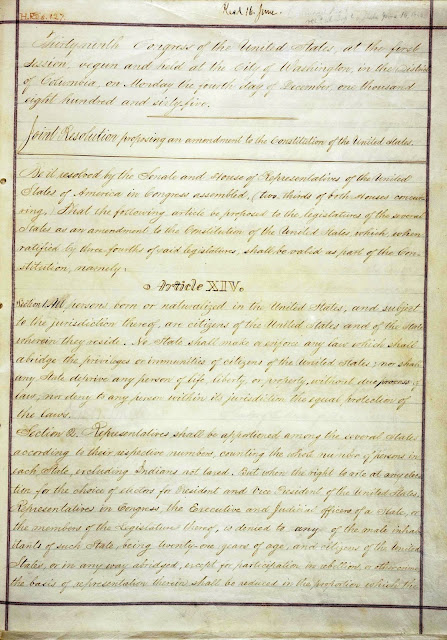 H.Res. 127
Rec'd 16 June.
Thirty-ninth Congress of the United States, at the first
session, begun and held at the City of Washington, in the District
of Columbia, on Monday the fourth day of December, one thousand
eight hundred and sixty-five.
Joint Resolution proposing an amendment to the Constitution of the United States.
Be it resolved by the Senate and House of Representatives of the United
States of America in Congress assembled, (two thirds of both Houses concur-
ring,) That the following article be proposed to the legislatures of the several
States as an amendment to the Constitution of the United States, which, when
ratified by three fourths of said legislatures, shall be valid as part of the Con-
stitution, namely:
Article XIV.
Section 1. All persons born or naturalized in the United States, and subject
to the jurisdiction thereof, are citizens of the United States and of the State
wherein they reside. No State shall make or enforce any law which shall
abridge the privileges or immunities of citizens of the United States; nor shall
any State deprive any person of life, liberty, or property, without due process of
law; nor deny to any person within its jurisdiction the equal protection of
the laws.
Section 2. Representatives shall be apportioned among the several States
according to their respective numbers, counting the whole number of persons in
each State, excluding Indians not taxed. But when the right to vote at any elec-
tion for the choice of electors for President and Vice President of the United States,
Representatives in Congress, the Executive and Judicial officers of a State, or
the members of the Legislature thereof, is denied to any of the male inhab-
itants of such State, being twenty-one years of age, and citizens of the United
States, or in any way abridged, except for participation in rebellion, or other crime,
the basis of representation therein shall be reduced in the proportion which the